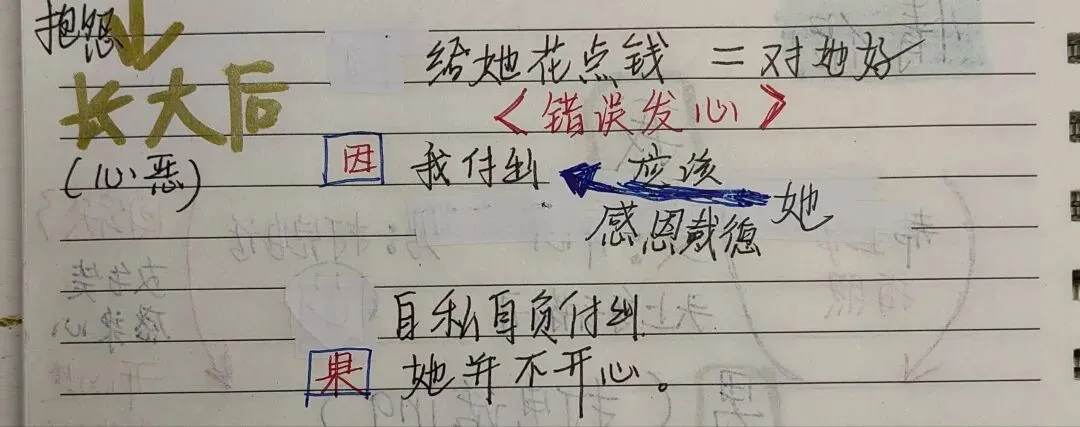 抱怨
给她花点钱 = 对她好
长大后
<错误发心>
(心恶)
因 我付出 应该
她
感恩戴德
自私自负付出
果 她并不开心。